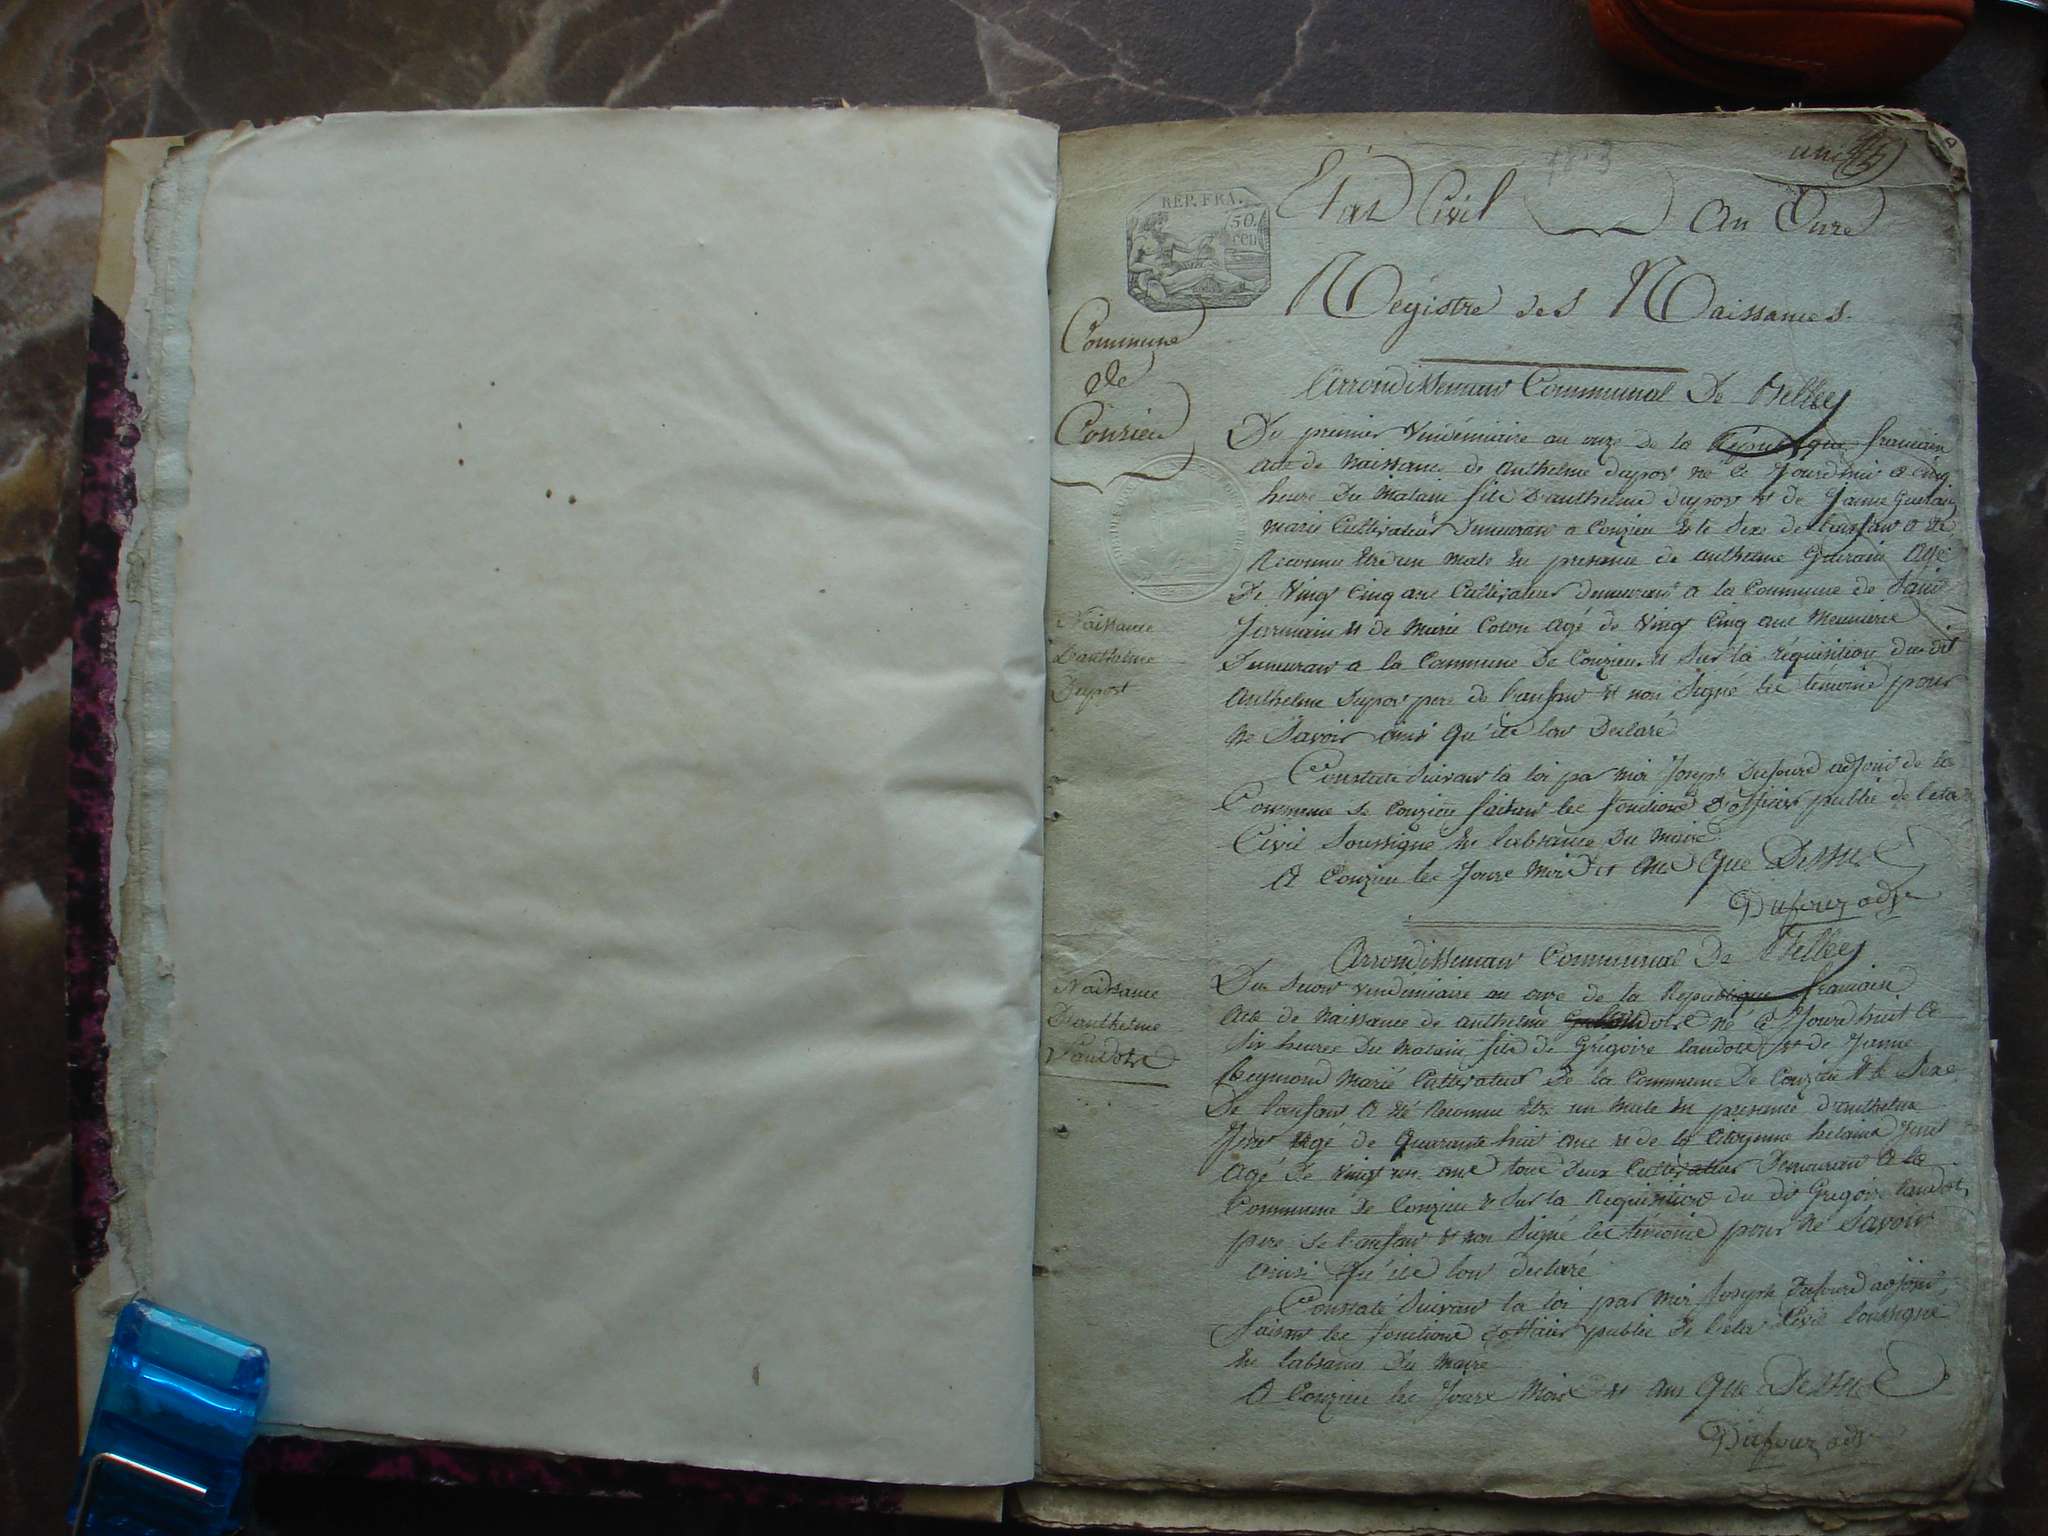 1803
REP. FRA.
50. cen
Etat Civil An Onze
Registre des Naissances.
Commune
de
Conzieu
L'arrondissemant Communal De Belley
Du premier vendémiaire an onze de la République francaise
acte de Naissance de anthelme dupost né ce Jourdhui a cinq
heure Du Matain fils D'anthelme dupost et de Janne Guerain
marié Cultivateur Demeurant a Conzieu et le Sexe de l'anfant a été
Reconnu Etre un male En presance de anthelme Guerain Agé
De Vingt Cinq ans Cultivateur demeurant a la Commune de Saint
Jermain et de Marie Coton agé de Vingt Cinq ans Meuniere
Demeurant a la Commune De Conzieu et Sur la réquisition du dit
Anthelme Dupost pere de l'anfant et non Signé les temoins pour
ne Savoir ainsi qu'ils lont Declaré
Naissance
D'anthelme
Dupost
Constaté Suivant la loi par moi Joseph Dufour adjoint de la
Commune de Conzieu faisant les fonctions d'officier public de letat
Civil Soussigné En labsance Du Maire
A Conzieu les Jours Mois et ans Que Dessus
Dufour adjt
Arrondissemant Communal De Belley
Du Second vendémiaire an onze de la Republique francaise
Acte de Naissance de anthelme né ce Jourdhuit a
Six heures Du Matain fils de Grégoire landoté et de Janne
Reymond Marié Cultivateur De la Commune De Conzieu et le Sexe
De l'anfant A été Reconnu Etre un Male En presance d'anthelme
Jent agé de Quarante huit ans et de la Citoyenne helaine Jent
agé De vingt un ans tous Deux Cultivateur Demeurant A la
Commune De Conzieu et Sur la Requisition du dit Gregoire landoté
pere de l'anfant et non Signé les témoins pour Ne Savoir
ainsi Qu'ils lont declaré
Naissance
D'anthelme
Landoté
Constaté Suivant la loi par moi Joseph Dufour adjoint
faisant les fonctions d'officier public De l'etat Civil Soussigné
En labsance Du Maire
A Conzieu les Jours Mois et ans Que Dessus
Dufour adjt